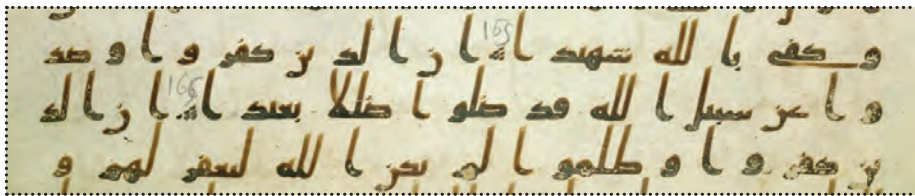 و كفى با لله شهيدا 165 ا ن ا لذ ين كفر و ا و صد
و ا عن سبيل ا لله قد ضلو ا ضللا بعيدا 166 ا ن ا لذ
ين كفر و ا و ظلمو ا لم يكن ا لله ليغفر لهم و